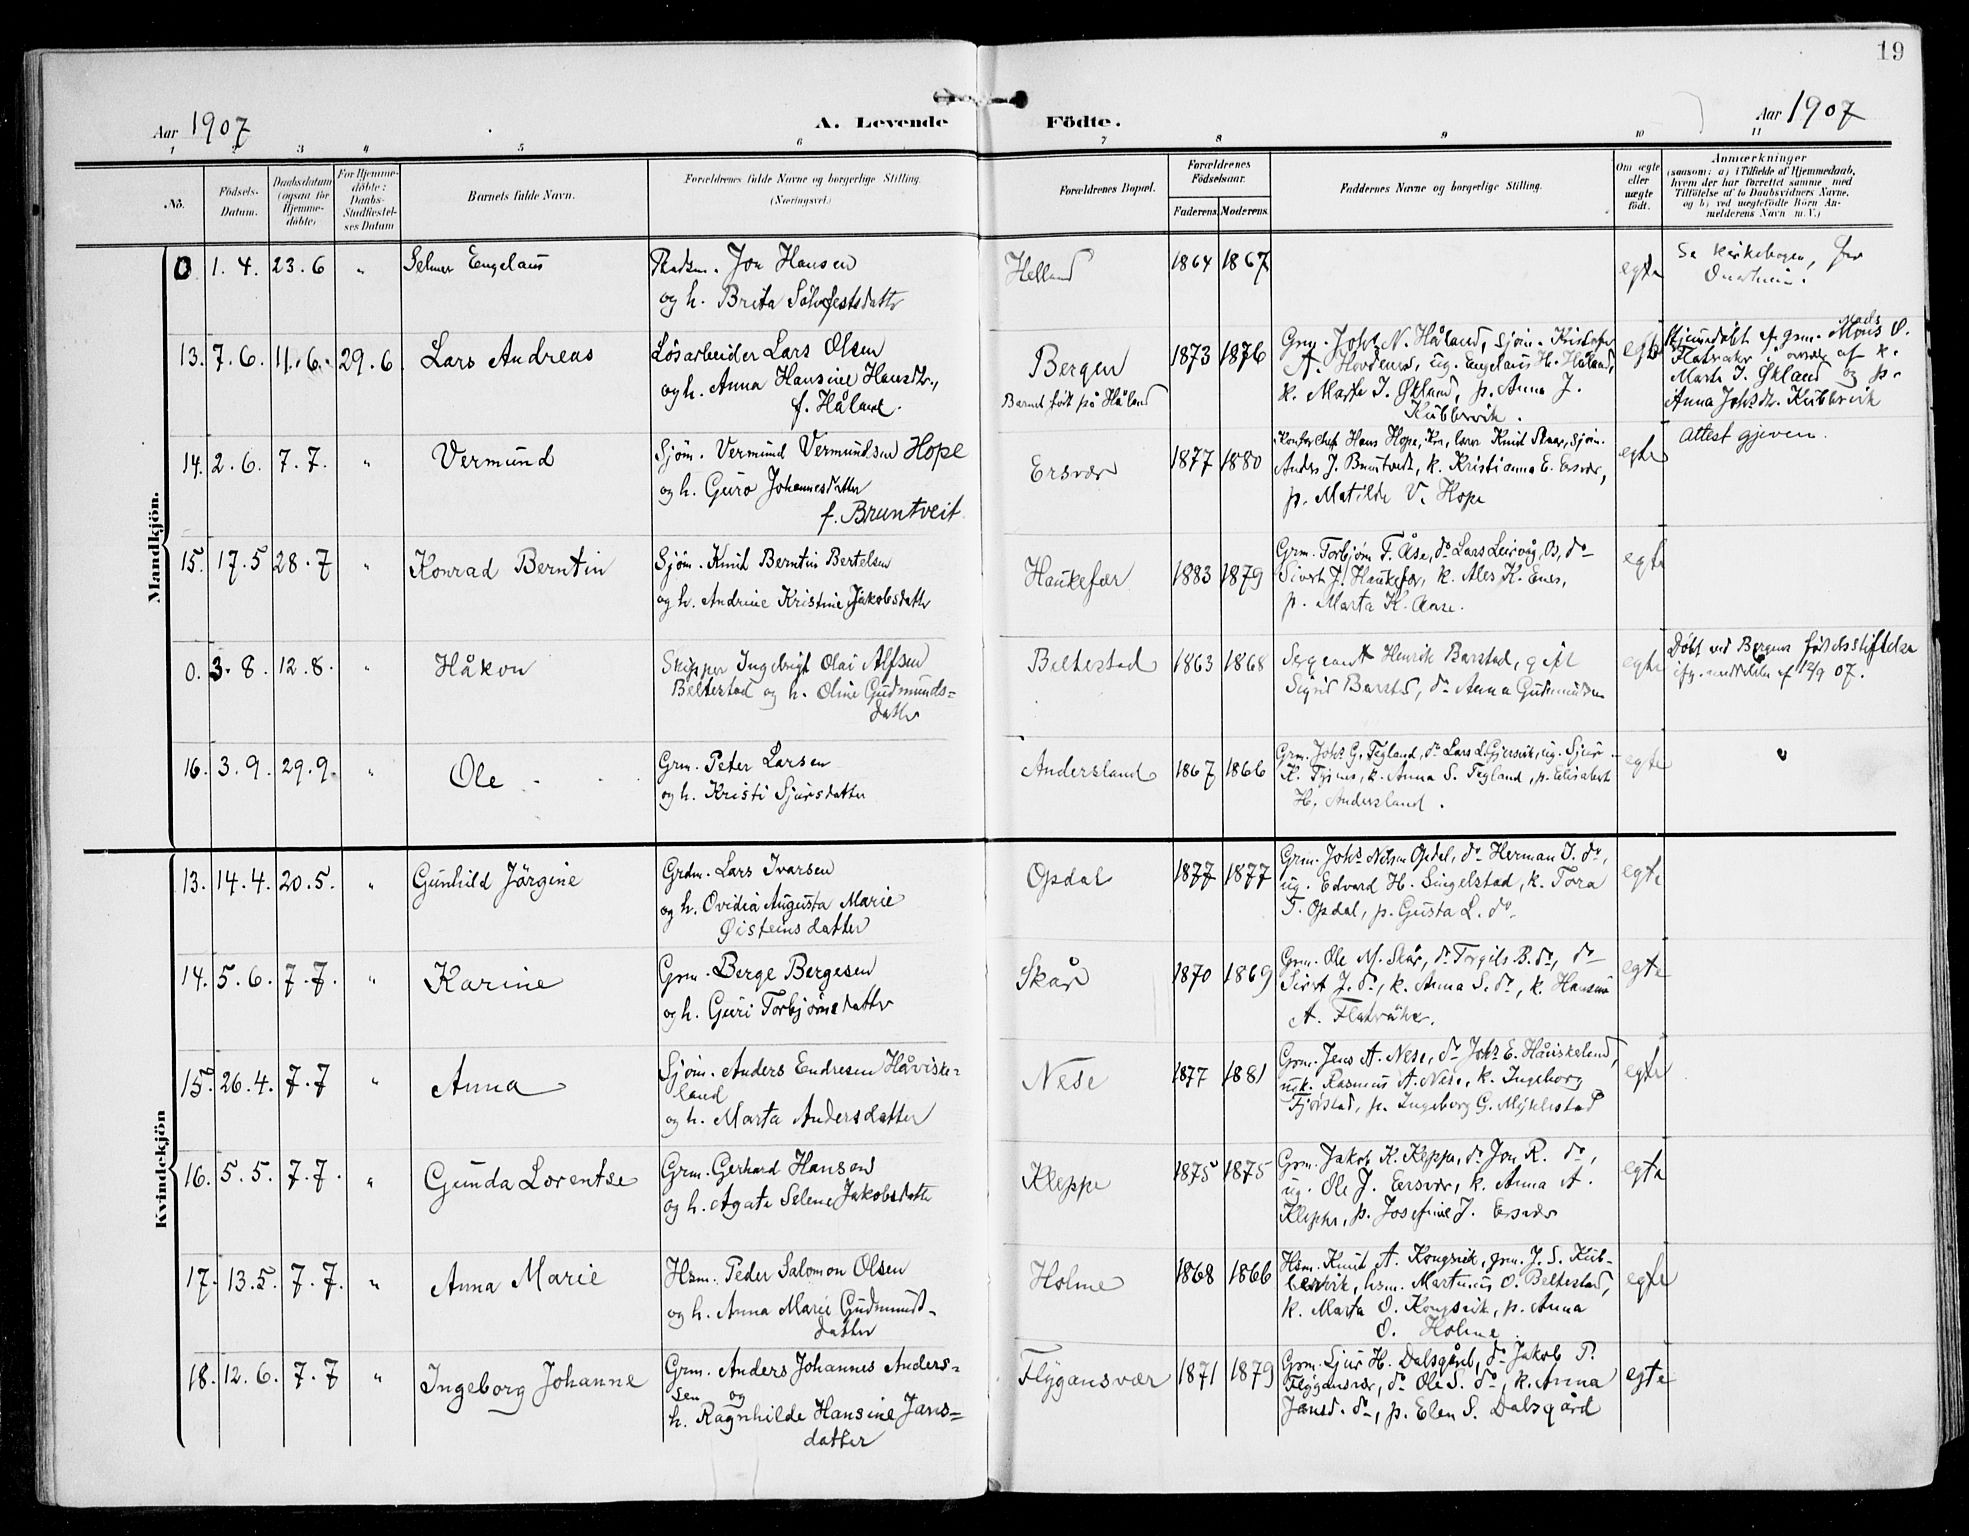 19
Aar 1907
A. Levende Födte.
Aar 1907
1 2 3 4 5 6 7 8 9 10 11
No.
Födsels-
Datum.
Daabsdatum
(ogsaa for
Hjemme-
döbte)
For Hjemme-
döbte:
Daabs-
Stadfæstel-
ses Datum
Barnets fulde Navn.
Forældrenes fulde Navne og borgerlige Stilling.
(Næringsvei.)
Forældrenes Bopæl.
Forældrenes
Födselsaar.
Faderens. Moderens.
Faddernes Navne og borgerlige Stilling.
Om ægte
eller
uægte
födt.
Anmærkninger
(saasom: a) i Tilfælde af Hjemmedaab,
hvem der har forrettet samme med
Tilföielse af to Daabsvidners Navne,
og b) ved uægtefödte Börn An-
melderens Navn m. V.)
Mandkjön.
0 1. 4. 23. 6 " Selmer Engelaus
Jon Hansen
og h. Brita Sølvfestsdatter
Helland
1864 1867
egte
Se kirkebogen for
Onarheim.
13. 7. 6. 11. 6. 29. 6 Lars Andreas
Løsarbeider Lars Olsen
og h. Anna Hansine Hansdtr.,
f. Håland.
Bergen
Barnet født på Håland
1873 1876
Grm. Johs N. Håland, sjøm. Kristofer
A. Hovdenes, ug. Engelaus H. Håland,
k. Marta I. Økland, p. Anna J.
Kubbervik.
egte
Hjemmedøbt af grm. Mons O.
Mads
Flatråker i overvær af k.
Marta I. Økland og p.
Anna Johsdtr. Kubbervik
14. 2. 6. 7. 7. " Vermund
Sjøm. Vermund Vermundsen Hope
og h. Guro Johannesdatter
f. Bruntveit.
Ersvær
1877 1880
Hans Hope, lærer Knut Skaar, sjøm.
Anders J. Bruntveit, k. Kristianna E. Ersvær,
p. Matilde V. Hope
egte
Attest gjeven.
15. 17. 5 28. 7 " Konrad Berntin
Sjøm. Knut Berntin Bertelsen
og h. Andrine Kristine Jakobsdatter
Haukefær
1883 1879
Grm. Torbjørn T. Åse, do Lars Leirvåg, B, do
Sivert J. Haukefær, k. Ales K. Enes,
p. Marta K. Aase.
egte
0. 3. 8. 12. 8. " Håkon
Skipper Ingebrigt Olai Alfsen
Beltestad og h. Oline Gudmunds=
datter
Beltestad
1863 1868
Sergeant Henrik Barstad, gift
Sigrid Barstad, do Anna Gudmundsen
egte
Døbt ved Bergens fødselsstiftelse
ifg. meddelelse af 12/9 07.
16. 3. 9. 29. 9. " Ole
Grm. Peter Larsen
og h. Kristi Sjursdatter
Andersland
1867 1866
Grm. Johs G. Tegland, do Lars L. Gjersvik, ug. Sjur
K. Tysnes, k. Anna S. Tegland, p. Elisabet
H. Andersland.
egte
Kvindekjön
13. 14. 4. 20. 5. " Gunhild Jörgine
Grdm. Lars Ivarsen
og h. Ovidia Augusta Marie
Øisteinsdatter
Opdal
1877 1877
Grm. Johs Nilsen Opdal, do Herman I. do,
ug. Edvard H. Singelstad, k. Tora
T. Opdal, p. Gusta L. do.
egte
14. 5. 6. 7. 7. " Karine
Grm. Berge Bergesen
og h. Guri Torbjørnsdatter
Skår
1870 1869
Grm. Ole M. Skår, do Torgils B. do, do
Sivert J. do, k. Anna S. do, k. Hansine
A. Flatråker.
egte
15. 26. 4. 7. 7 " Anna
Sjøm. Anders Endresen Håviske-
land
og h. Marta Andersdatter
Nese
1877 1881
Grm. Jens A. Nese, do Johs E. Håviskeland,
ugk. Rasmus A. Nese, k. Ingeborg
Fjorstad, p. Ingeborg G. Myklestad
egte
16. 5. 5. 7. 7. " Gunda Lorentse
Grm. Gerhard Hansen
og h. Agate Selene Jakobsdatter
Kleppe
1875 1875
Grm. Jakob K. Kleppe, do Jon R. do,
ug. Ole J. Ersvær, k. Anna A.
Kleppe, p. Josefine J. Ersvær
egte
17. 13. 5. 7. 7. " Anna Marie
Hsm. Peder Salomon Olsen
og h. Anna Marie Gudmunds-
datter
Holme
1868 1866
Hsm. Knut A. Kongsvik, grm. J. S. Kub-
bervik, hsm. Martinus O. Beltestad,
k. Marta O. Kongsvik, p. Anna
O. Holme.
egte
18. 12. 6. 7. 7 " Ingeborg Johanne
Grm. Anders Johannes Anders=
sen og
h. Ragnhilde Hansine Jans=
datter
Flygansvær
1871 1879
Grm. Sjur H. Dalsgård, do Jakob P.
Flygansvær, do Ole S. do, k. Anna
Jansd. do, p. Elen S. Dalsgård
egte